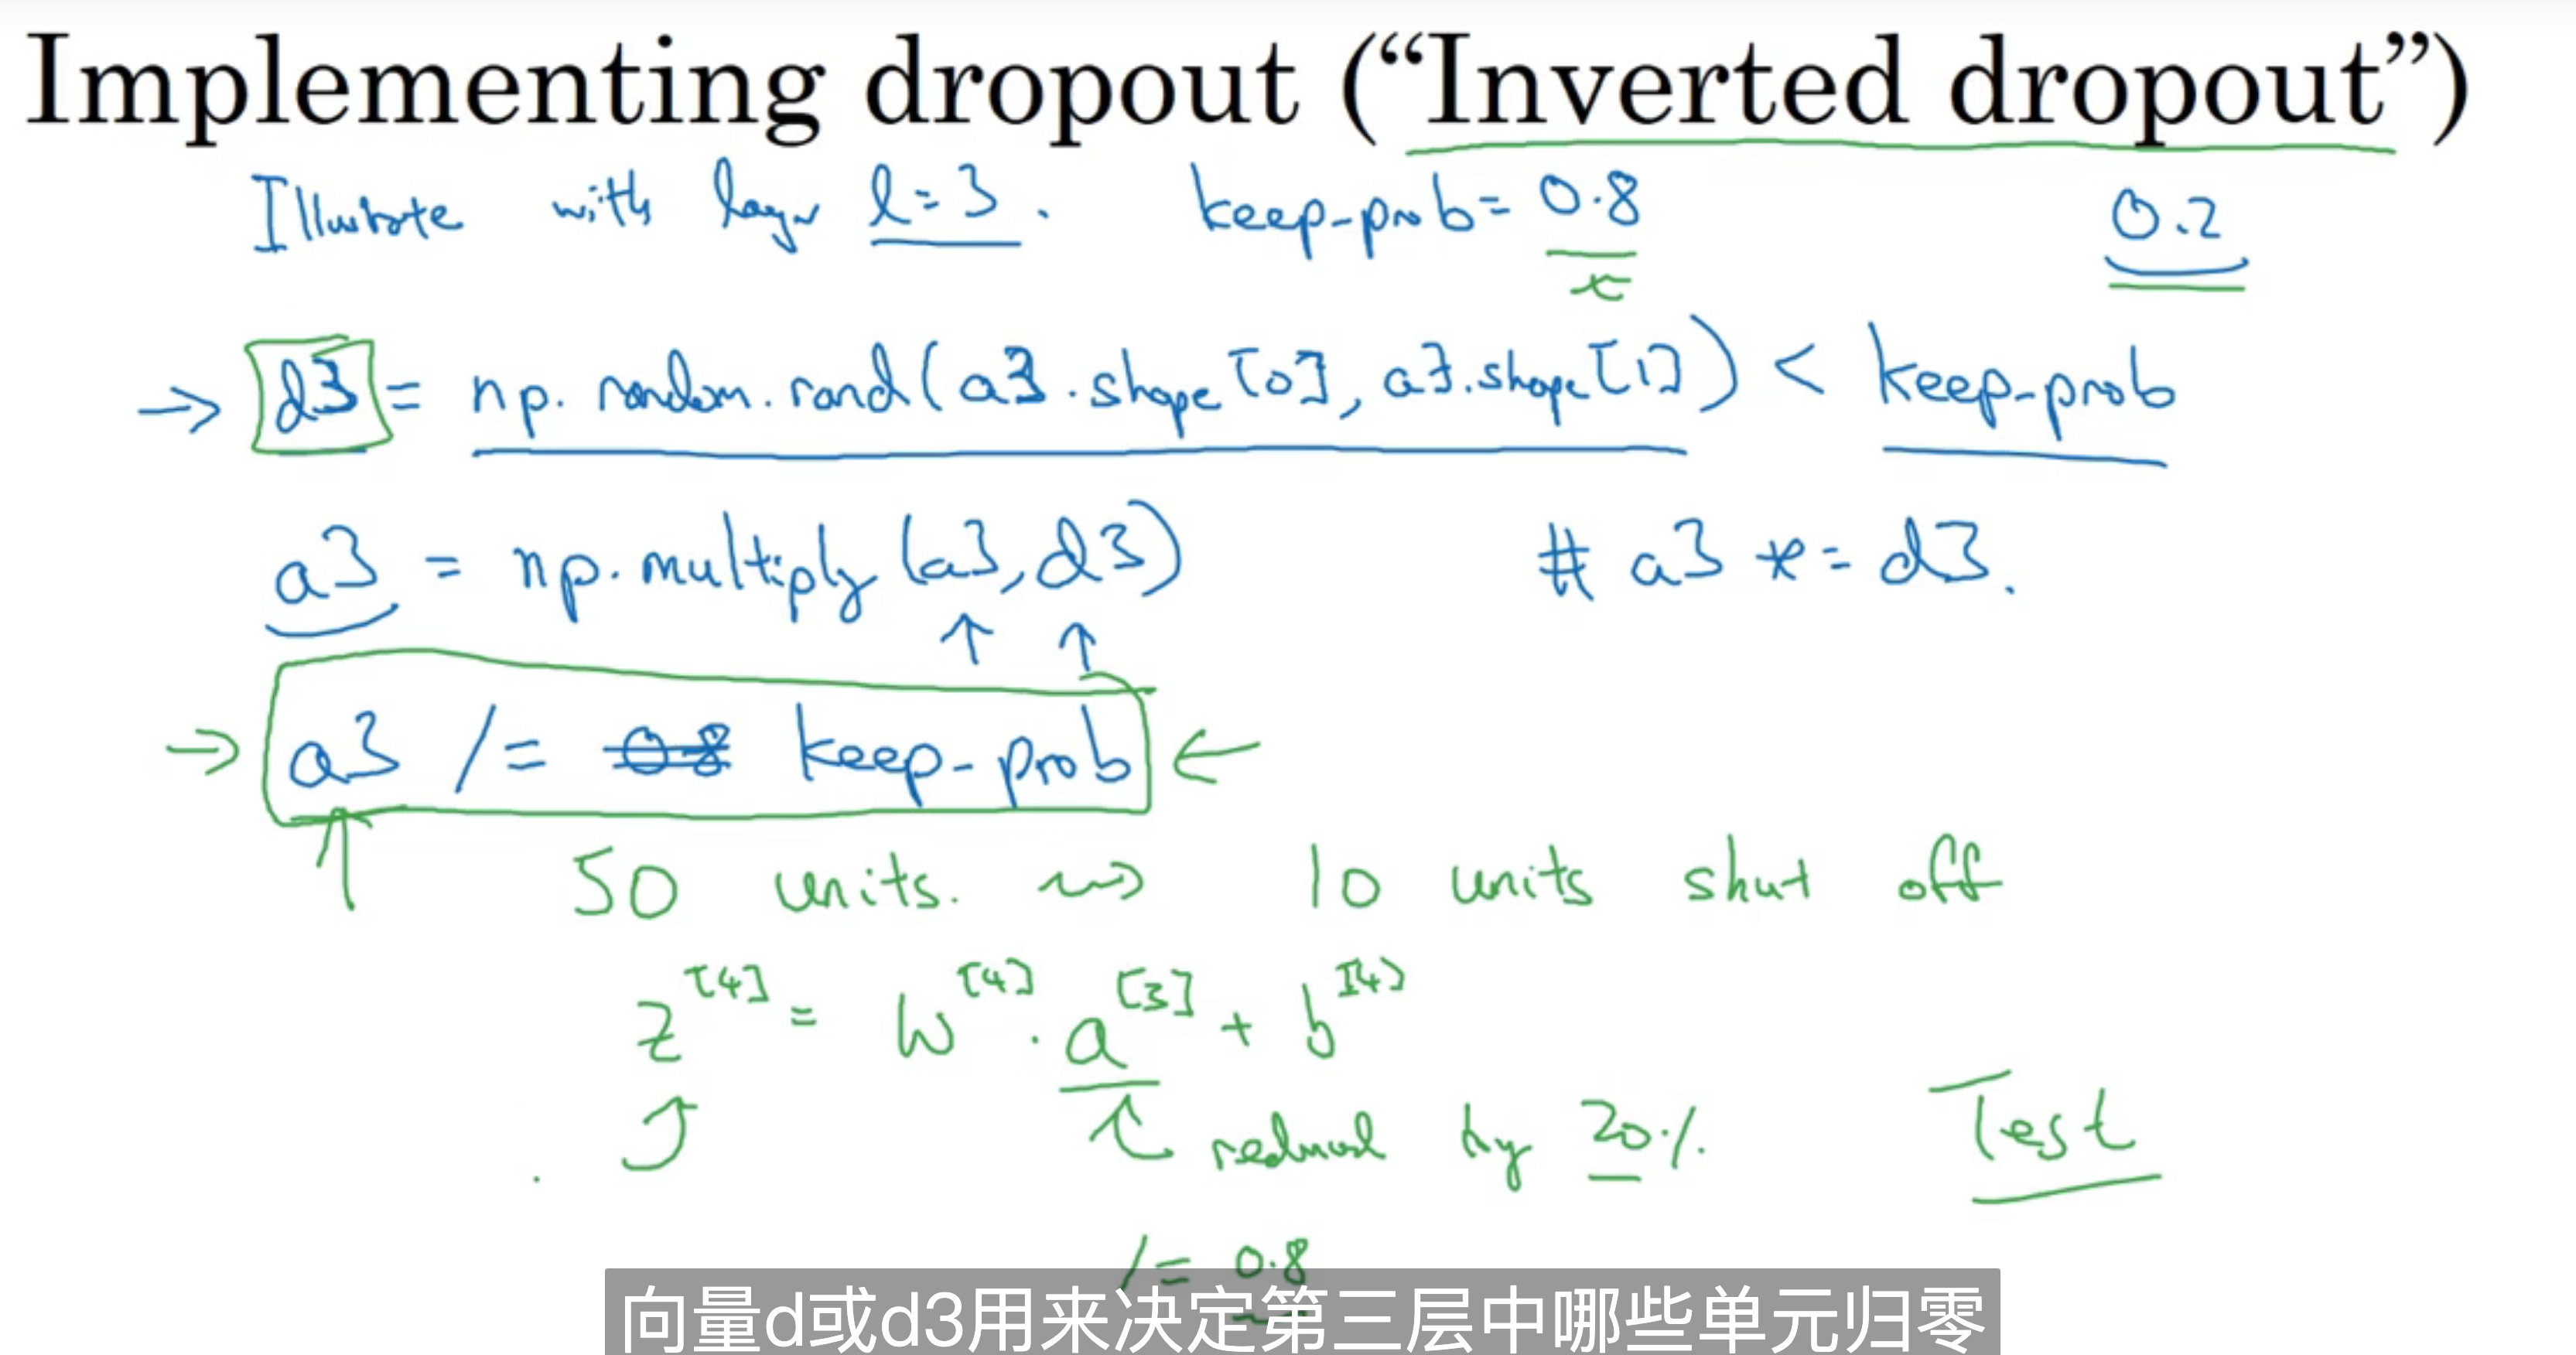 Implementing dropout (“Inverted dropout”)
Illustrate with layer l=3. keep-prob= 0.8 0.2
→ d3 = np.random.rand(a3.shape[0], a3.shape[1]) < keep-prob
a3 = np.multiply(a3,d3) # a3 *= d3.
↑ ↑
→ a3 /= 0.8 keep-prob ←
50 units. ⇝ 10 units shut off
z^[4] = W^[4] · a^[3] + b^[4]
reduced by 20%
Test
/= 0.8
向量d或d3用来决定第三层中哪些单元归零